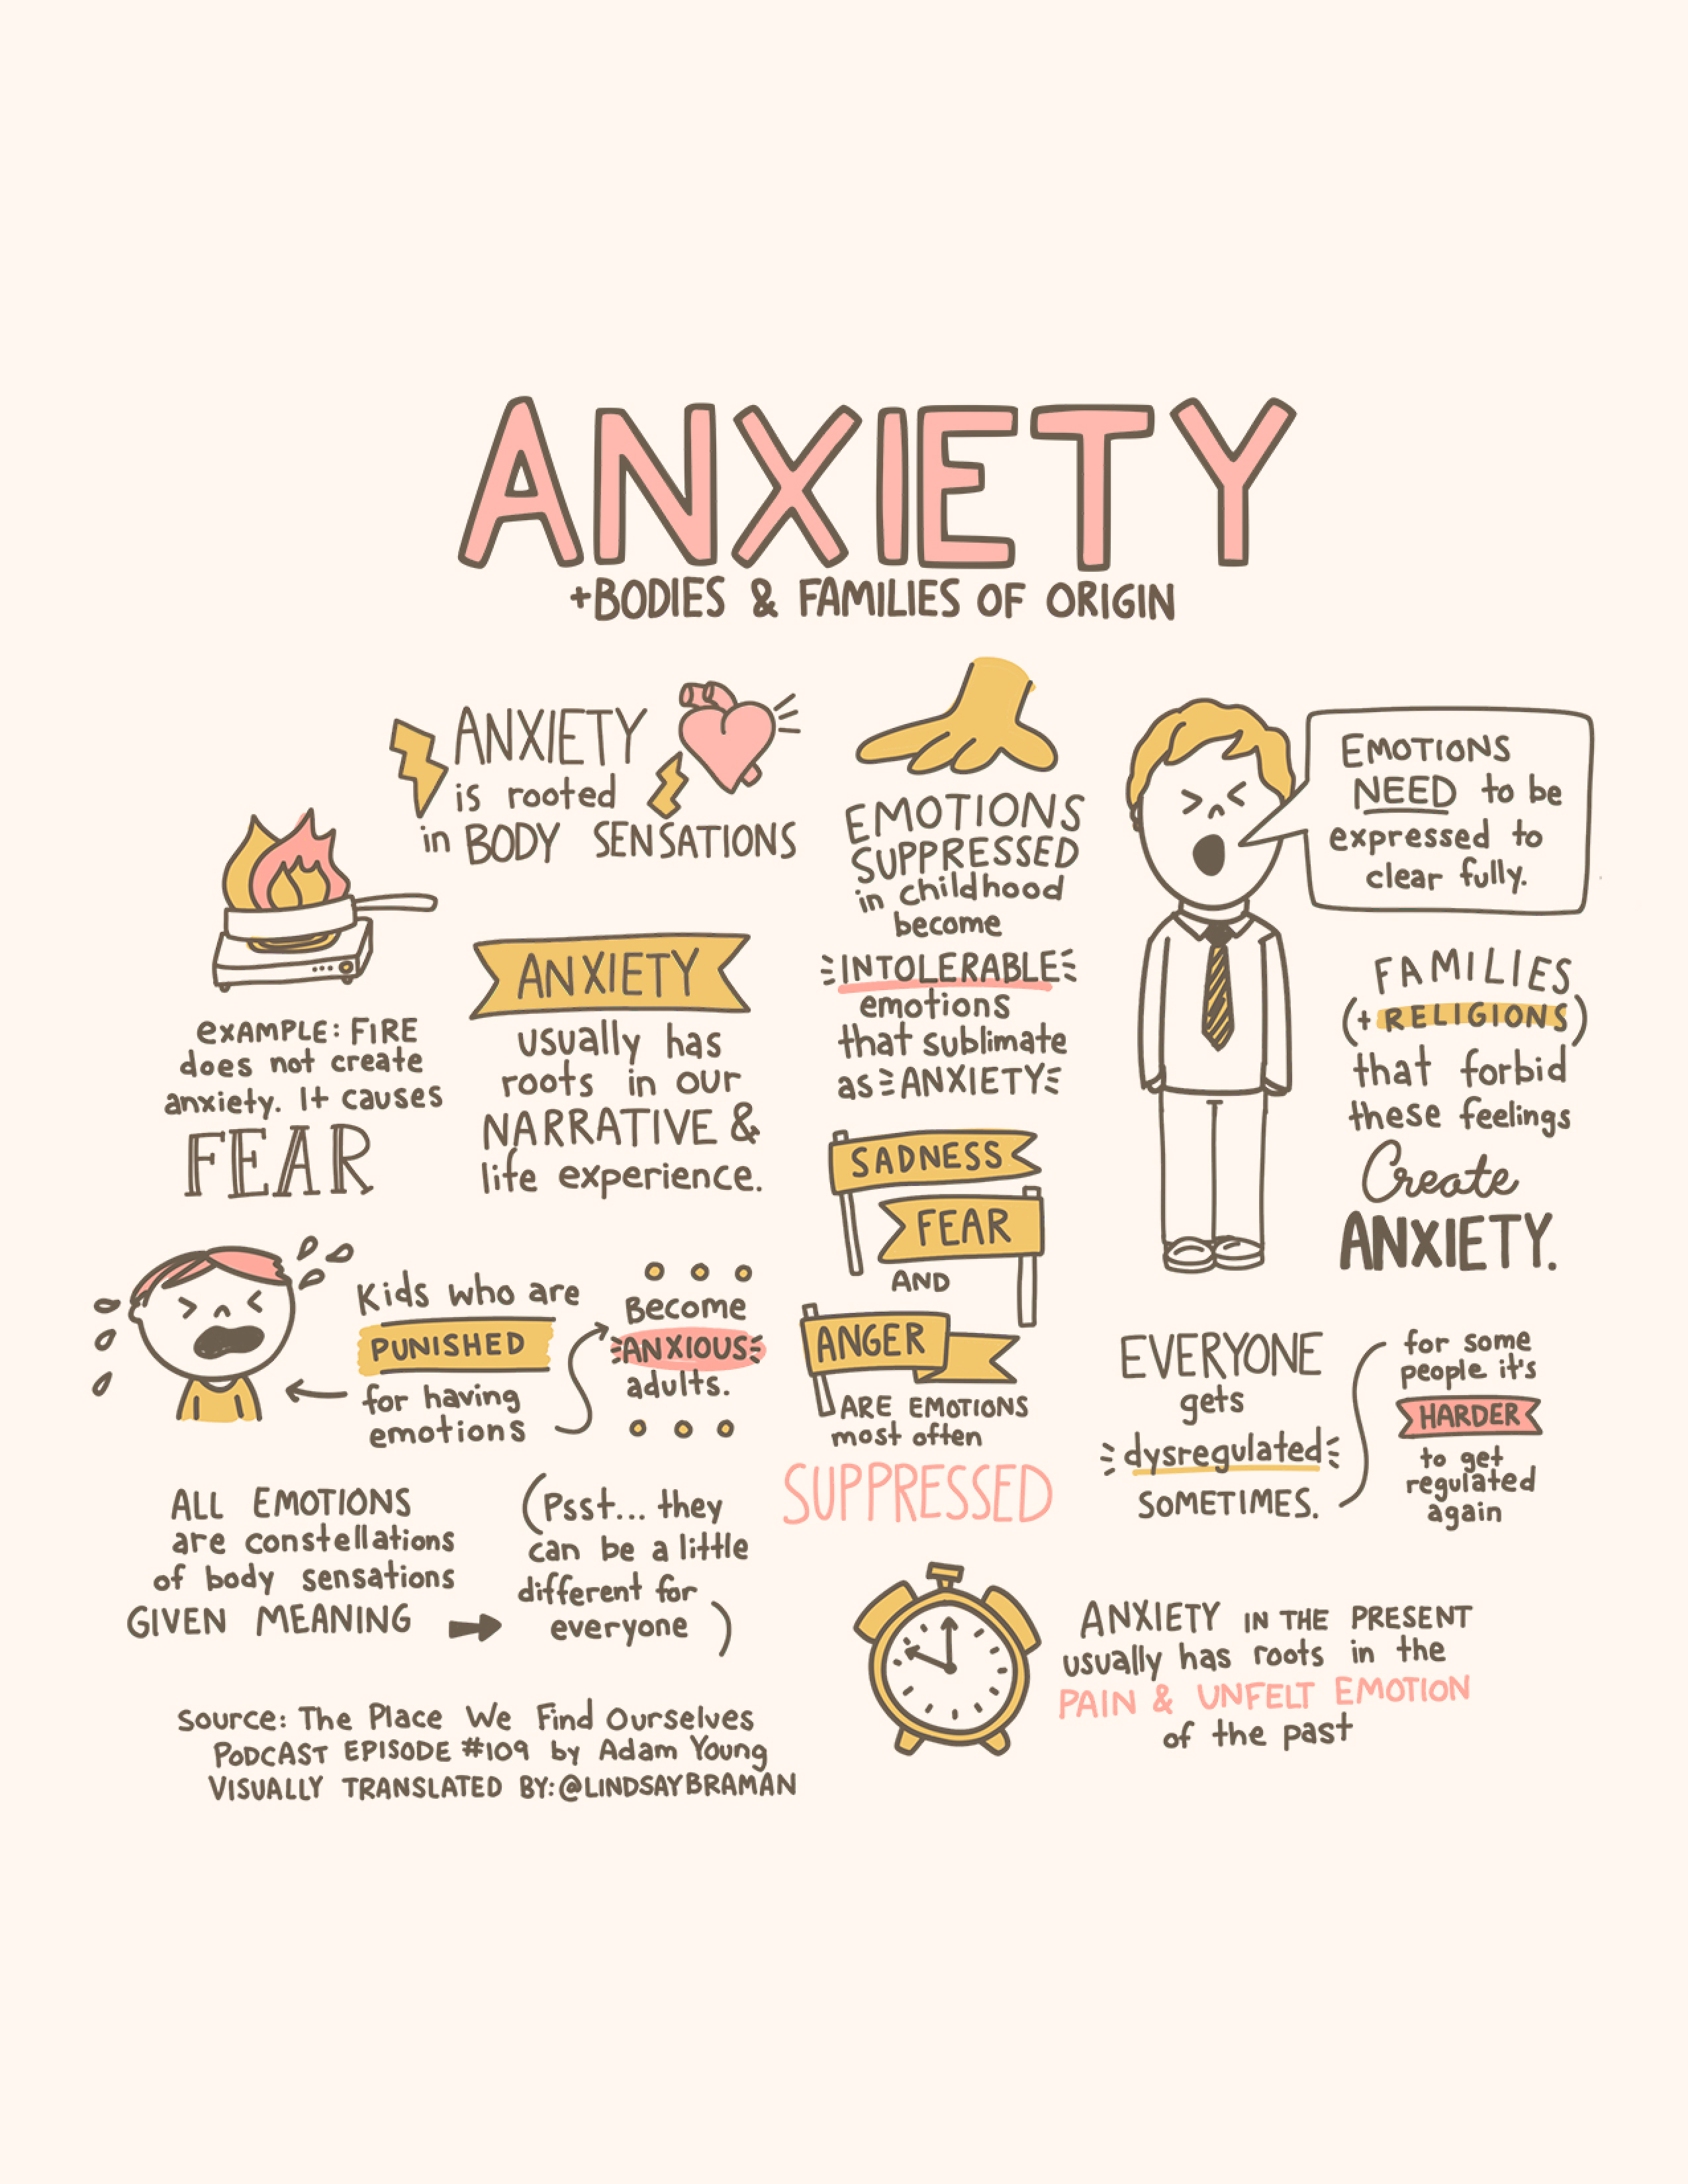 ANXIETY
+BODIES & FAMILIES OF ORIGIN
ANXIETY
is rooted
in BODY SENSATIONS
EXAMPLE: FIRE
does not create
anxiety. It causes
FEAR
ANXIETY
usually has
roots in our
NARRATIVE &
life experience.
Kids who are
PUNISHED
for having
emotions
Become
ANXIOUS
adults.
ALL EMOTIONS
are constellations
of body sensations
GIVEN MEANING
(Psst... they
can be a little
different for
everyone)
EMOTIONS
SUPPRESSED
in childhood
become
INTOLERABLE
emotions
that sublimate
as ANXIETY
SADNESS
FEAR
AND
ANGER
ARE EMOTIONS
most often
SUPPRESSED
EMOTIONS
NEED to be
expressed to
clear fully.
FAMILIES
(+ RELIGIONS)
that forbid
these feelings
Create
ANXIETY.
EVERYONE
gets
dysregulated
SOMETIMES.
for some
people it's
HARDER
to get
regulated
again
ANXIETY IN THE PRESENT
usually has roots in the
PAIN & UNFELT EMOTION
of the past
Source: The Place We Find Ourselves
PODCAST EPISODE #109 by Adam Young
VISUALLY TRANSLATED BY: @LINDSAYBRAMAN